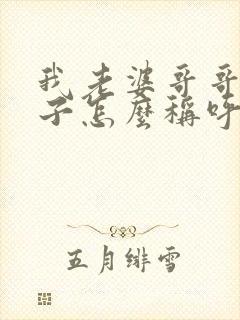 我老婆哥哥
子怎麼稱呼
五月緋雪